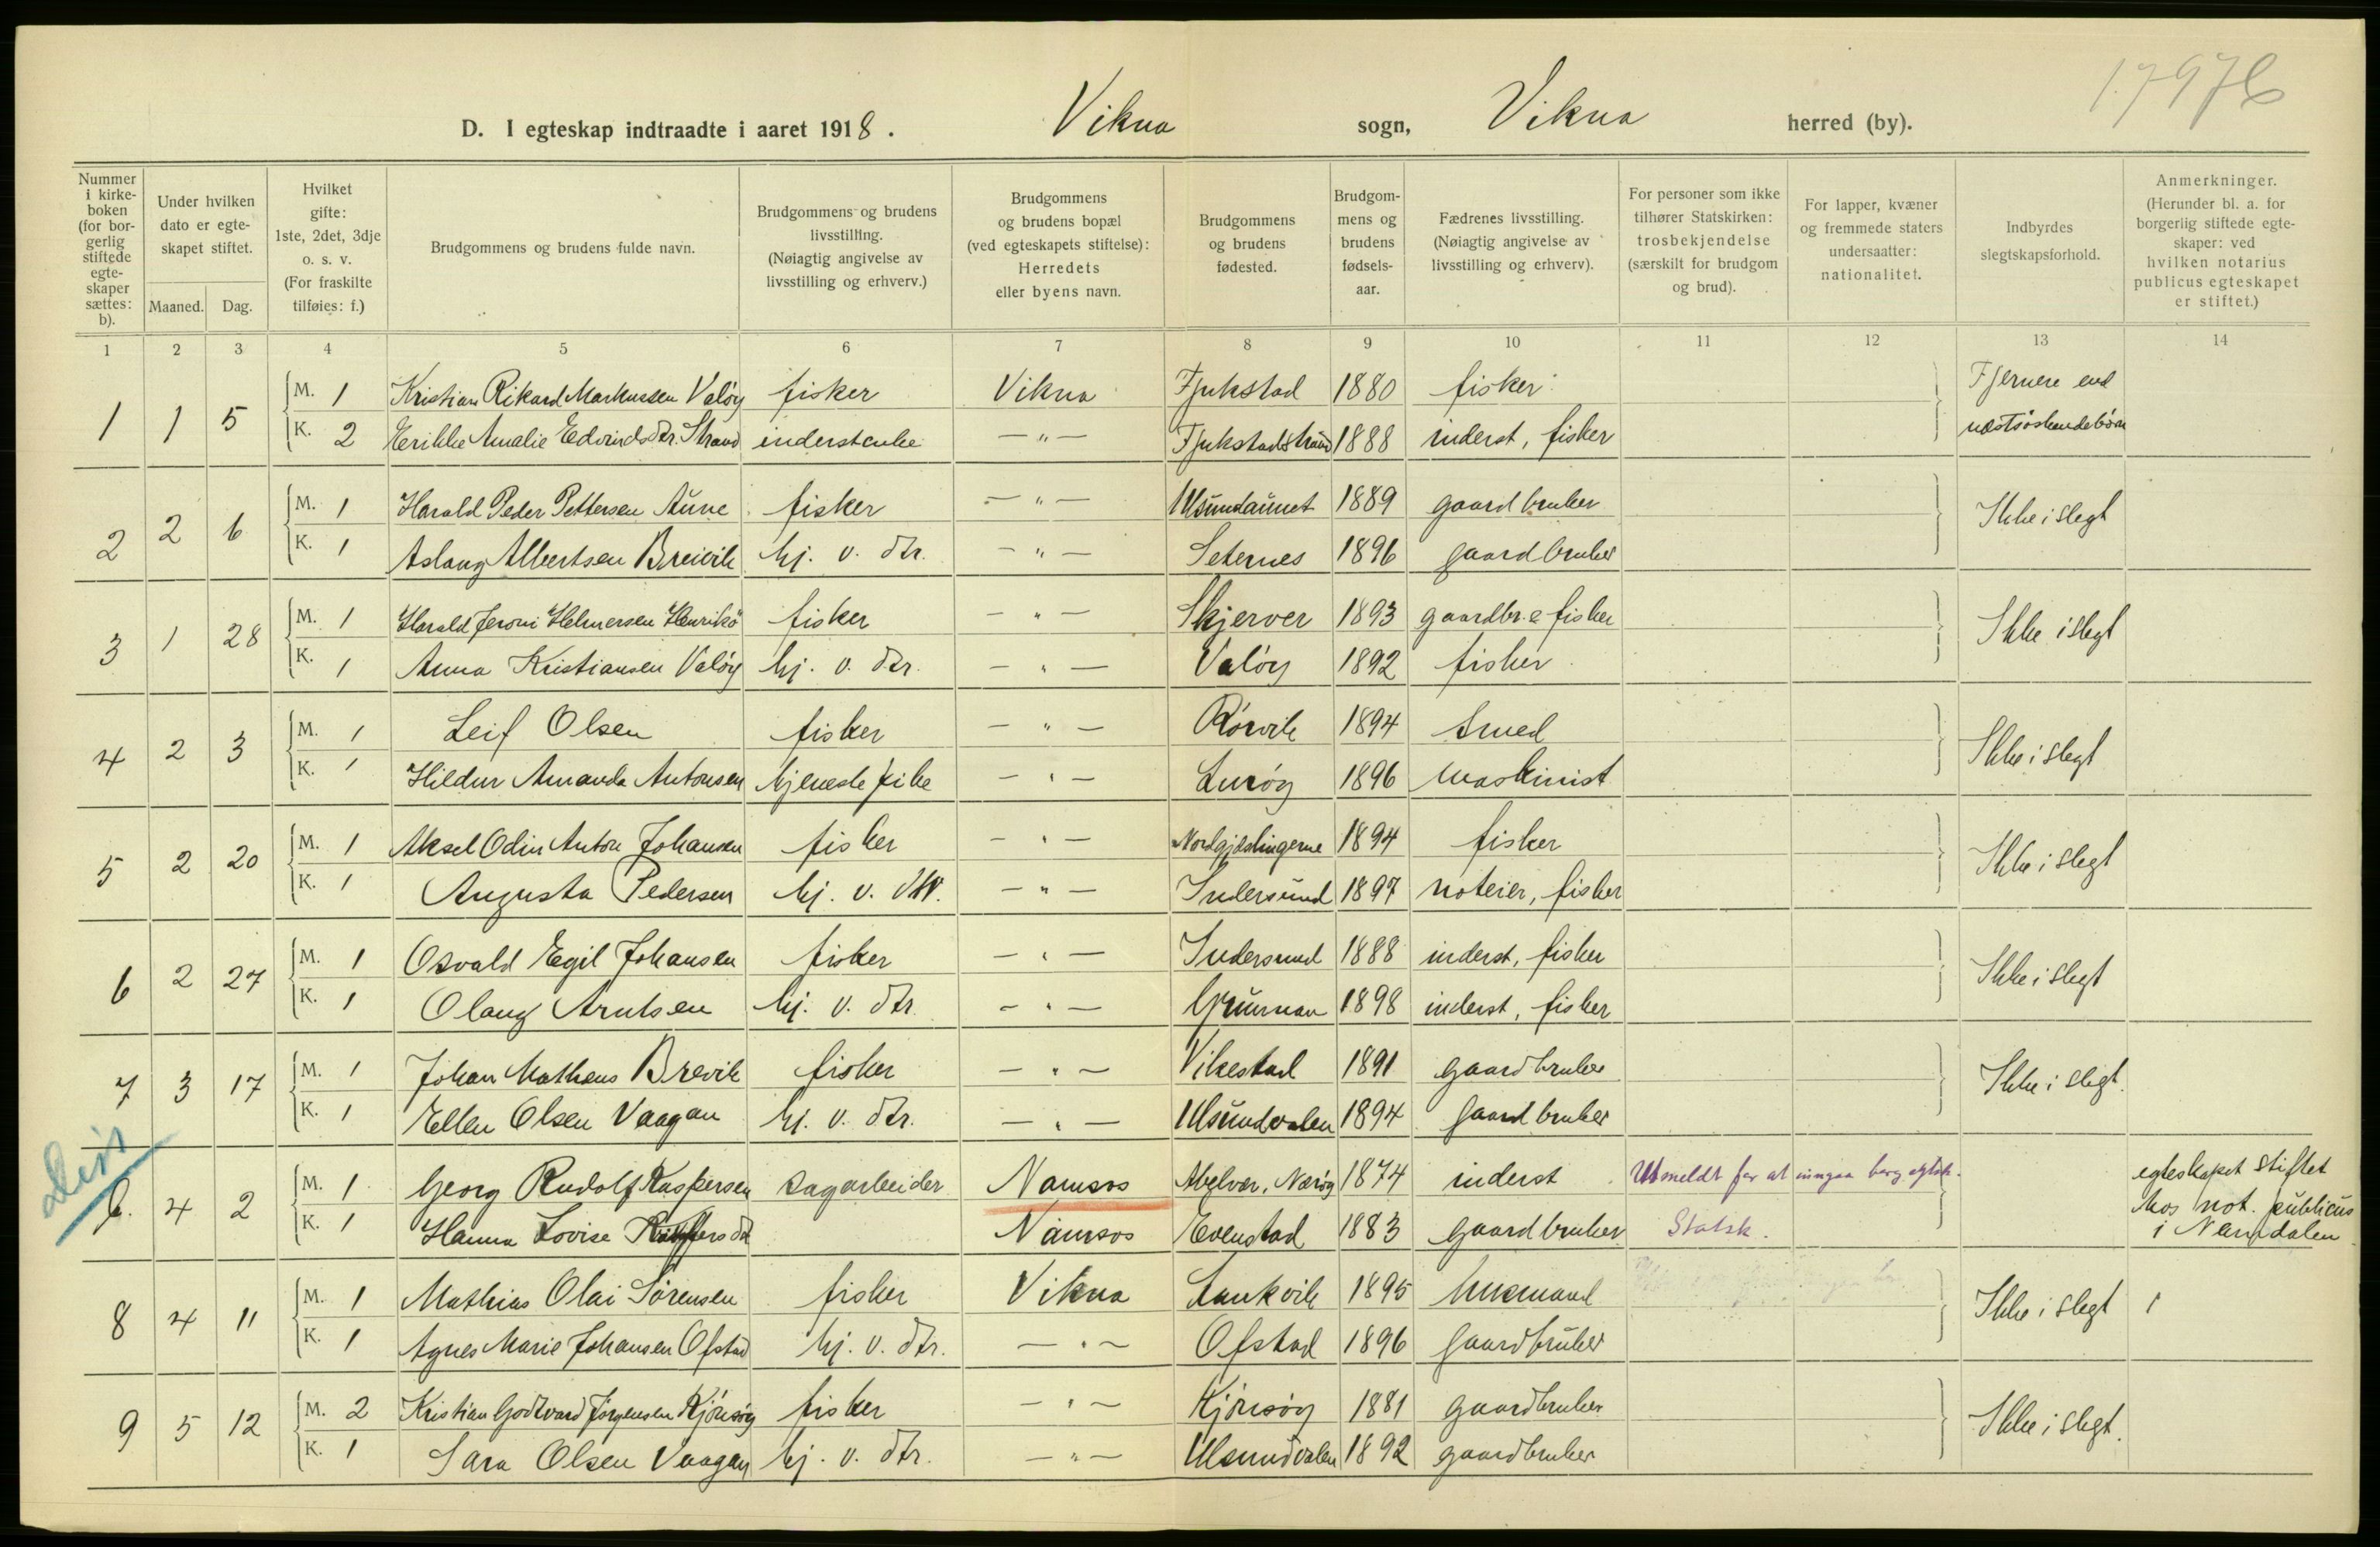 17976
D. I egteskap indtraadte i aaret 1918. Vikna sogn, Vikna herred (by).
Nummer i kirkeboken (for borgerlig stiftede egteskaper sættes: b).
Under hvilken dato er egteskapet stiftet.
Maaned. Dag.
Hvilket gifte: 1ste, 2det, 3dje o. s. v. (For fraskilte tilføies: f.)
Brudgommens og brudens fulde navn.
Brudgommens og brudens livsstilling. (Nøiagtig angivelse av livsstilling og erhverv.)
Brudgommens og brudens bopæl (ved egteskapets stiftelse): Herredets eller byens navn.
Brudgommens og brudens fødested.
Brudgommens og brudens fødselsaar.
Fædrenes livsstilling. (Nøiagtig angivelse av livsstilling og erhverv).
For personer som ikke tilhører Statskirken: trosbekjendelse (særskilt for brudgom og brud).
For lapper, kvæner og fremmede staters undersaatter: nationalitet.
Indbyrdes slegtskapsforhold.
Anmerkninger. (Herunder bl. a. for borgerlig stiftede egteskaper: ved hvilken notarius publicus egteskapet er stiftet.)
1 2 3 4 5 6 7 8 9 10 11 12 13 14
1 1 5 M. 1 Kristian Rikard Markussen Valöy fisker Vikna Fjukstad 1880 fisker Fjernere end
K. 2 Erikke Amalie Edvindsdtr. Strand inderstenke — " — Fjukstadstrand 1888 inderst, fisker næstsöskendebörn
2 2 6 M. 1 Harald Peder Pettersen Aune fisker — " — Ulsundaunet 1889 gaardbruker Ikke i slegt
K. 1 Aslaug Albertsen Breivik hj. v. dtr. — " — Seternes 1896 gaardbruker
3 1 28 M. 1 Harald Jeroni Helmersen Henriksö fisker — " — Skjerver 1893 gaardbr. & fisker Ikke i slegt
K. 1 Anna Kristiansen Valöy hj. v. dtr. — " — Valöy 1892 fisker
4 2 3 M. 1 Leif Olsen fisker — " — Rörvik 1894 smed Ikke i slegt
K. 1 Hildur Amanda Antonsen tjeneste pike — " — Luröy 1896 maskinist
5 2 20 M. 1 Aksel Odin Anton Johansen fisker — " — Nordgjæslingerne 1894 fisker Ikke i slegt
K. 1 Augusta Pedersen hj. v. dtr. — " — Indersund 1897 noteier, fisker
6 2 27 M. 1 Osvald Egil Johansen fisker — " — Indersund 1888 inderst, fisker Ikke i slegt
K. 1 Olaug Arntsen hj. v. dtr. — " — 1898 inderst, fisker
7 3 17 M. 1 Johan Mathæus Brevik fisker — " — Vikestad 1891 gaardbruker Ikke i slegt.
K. 1 Ellen Olsen Vaagan hj. v. dtr. — " — Ulsundvalen 1894 gaardbruker
b. 4 2 M. 1 Georg Rudolf Kaspersen sagarbeider Namsos Abelvær, Nærøy 1874 inderst Utmeldt for at inngaa borg. egtsk. egteskapet stiftet
K. 1 Hanna Lovise Namsos Evenstad 1883 gaardbruker Statsk. hos not. publicus
i Namdalen
8 4 11 M. 1 Mathias Olai Sörensen fisker Vikna Laukvik 1895 Ikke i slegt 1
K. 1 Agnes Marie Johansen Ofstad hj. v. dtr. — " — Ofstad 1896 gaardbruker
9 5 12 M. 2 Kristian Godtvard Jörgensen Kjönsöy fisker — " — Kjönsöy 1881 gaardbruker Ikke i slegt.
K. 1 Sara Olsen Vaagan hj. v. dtr. — " — Ulsundvalen 1892 gaardbruker